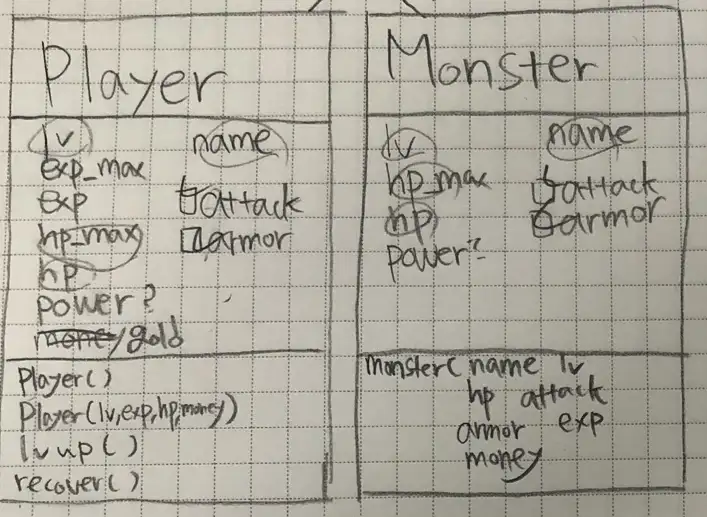 Player
lv name
exp_max
exp attack
hp_max armor
hp
power?
money/gold
Player()
Player(lv,exp,hp,money)
lvup()
recover()
Monster
lv name
hp_max attack
hp armor
power?
Monster( name lv
hp attack
armor exp
money